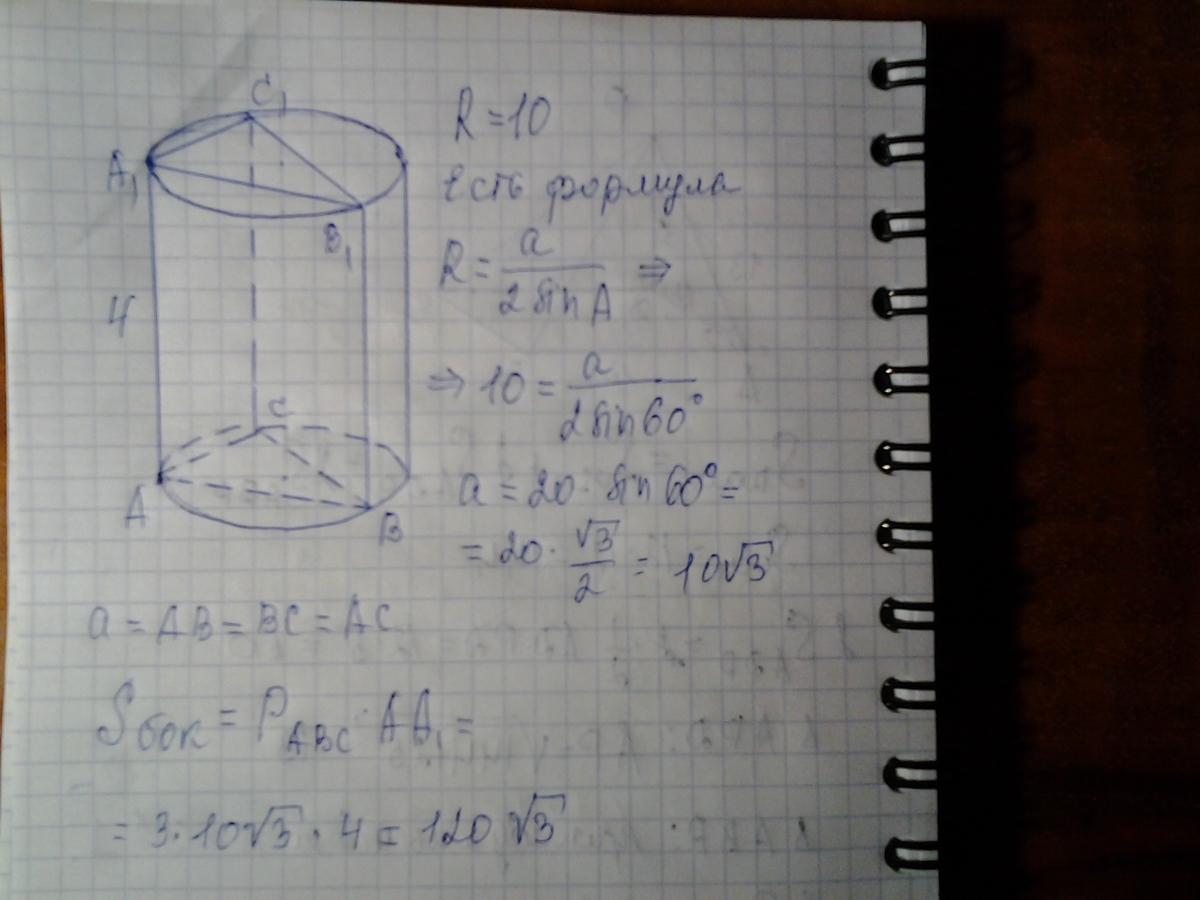 C₁
A₁
B₁
4
C
A
B
R = 10
Есть формула
R = a / 2 sin A ⇒
⇒ 10 = a / 2 sin 60°
a = 20 · sin 60° =
= 20 · √3 / 2 = 10√3
a = AB = BC = AC
Sбок = P_ABC · AA₁ =
= 3 · 10√3 · 4 = 120√3